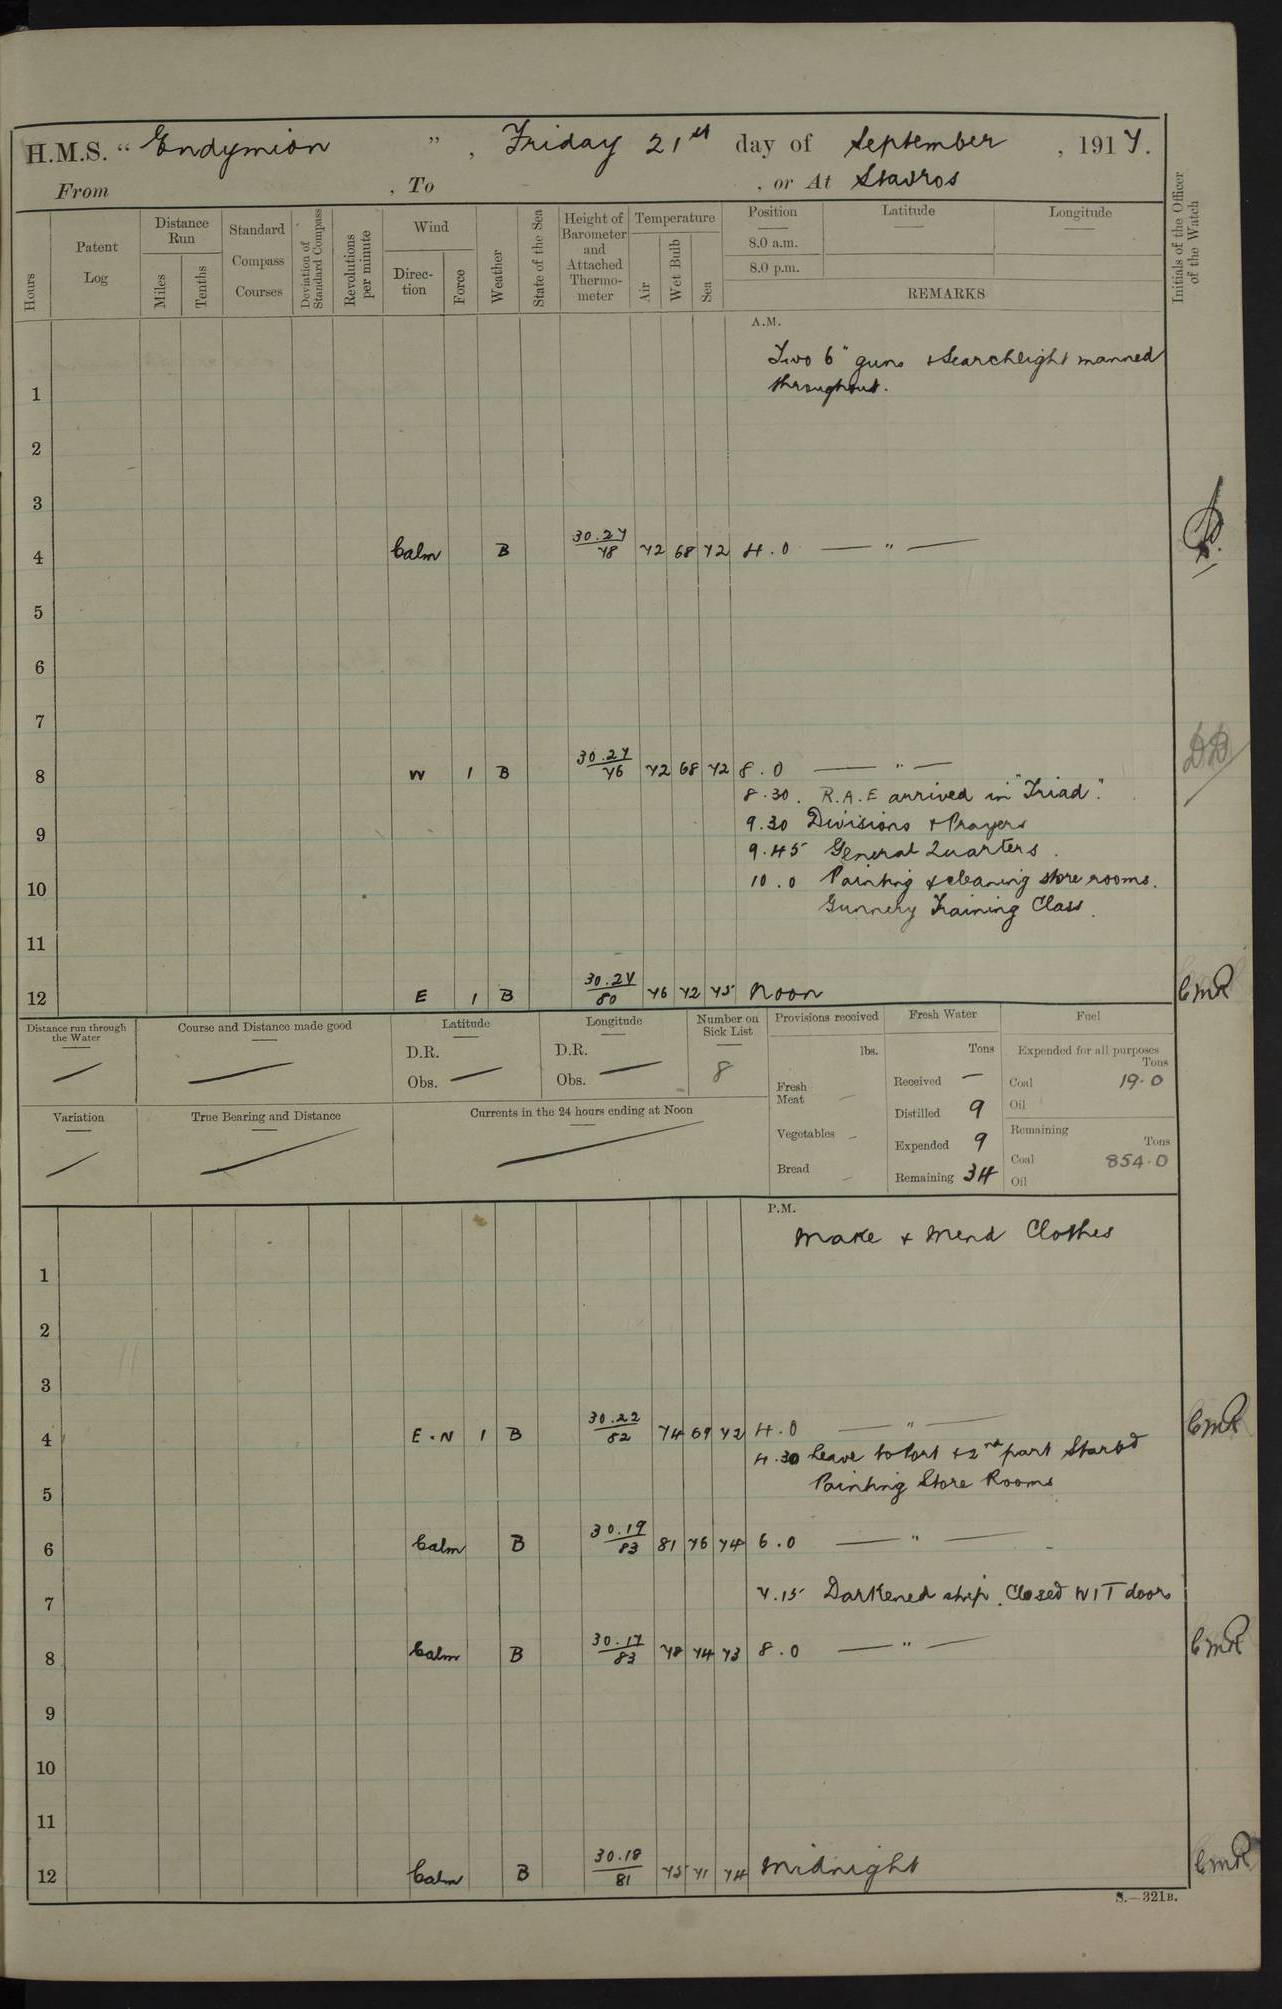 H.M.S. " Endymion " , Friday 21st day of September , 1917.
From , To , or At Stavros
Hours
Patent Log
Distance Run
Miles
Tenths
Standard Compass Courses
Deviation of Standard Compass
Revolutions per minute
Wind
Direc-tion
Force
Weather
State of the Sea
Height of Barometer and Attached Thermo-meter
Temperature
Air
Wet Bulb
Sea
Position
8.0 a.m.
8.0 p.m.
Latitude
Longitude
REMARKS
Initials of the Officer of the Watch
A.M.
Two 6" guns & Searchlight manned
throughout.
1
2
3
4 Calm B 30.27/78 72 68 72 4.0 — " —
5
6
7
8 W 1 B 30.27/76 72 68 72 8.0 — " —
8.30. R.A.E arrived in "Triad".
9
9.30 Divisions & Prayers
9.45 General Quarters.
10
10.0 Painting & cleaning store rooms.
Gunnery Training Class.
11
12 E 1 B 30.27/80 76 72 75 Noon CMR
Distance run through the Water
Course and Distance made good
Latitude
D.R.
Obs. —
Longitude
D.R.
Obs. —
Number on Sick List
8
Provisions received
lbs.
Fresh Meat —
Vegetables —
Bread —
Fresh Water
Tons
Received —
Distilled 9
Expended 9
Remaining 34
Fuel
Expended for all purposes
Tons
Coal 19.0
Oil
Remaining
Tons
Coal 854.0
Oil
Variation
True Bearing and Distance
Currents in the 24 hours ending at Noon
P.M.
Make & Mend Clothes
1
2
3
4 E.N 1 B 30.22/82 74 69 72 4.0 — " — CMR
4.30 Leave to Port & 2nd part Starbd
Painting Store Rooms
5
6 Calm B 30.19/83 81 76 74 6.0 — " —
7.15 Darkened ship. Closed W/T doors
7
8 Calm B 30.17/83 78 74 73 8.0 — " — CMR
9
10
11
12 Calm B 30.18/81 75 71 74 Midnight CMR
S.—321B.